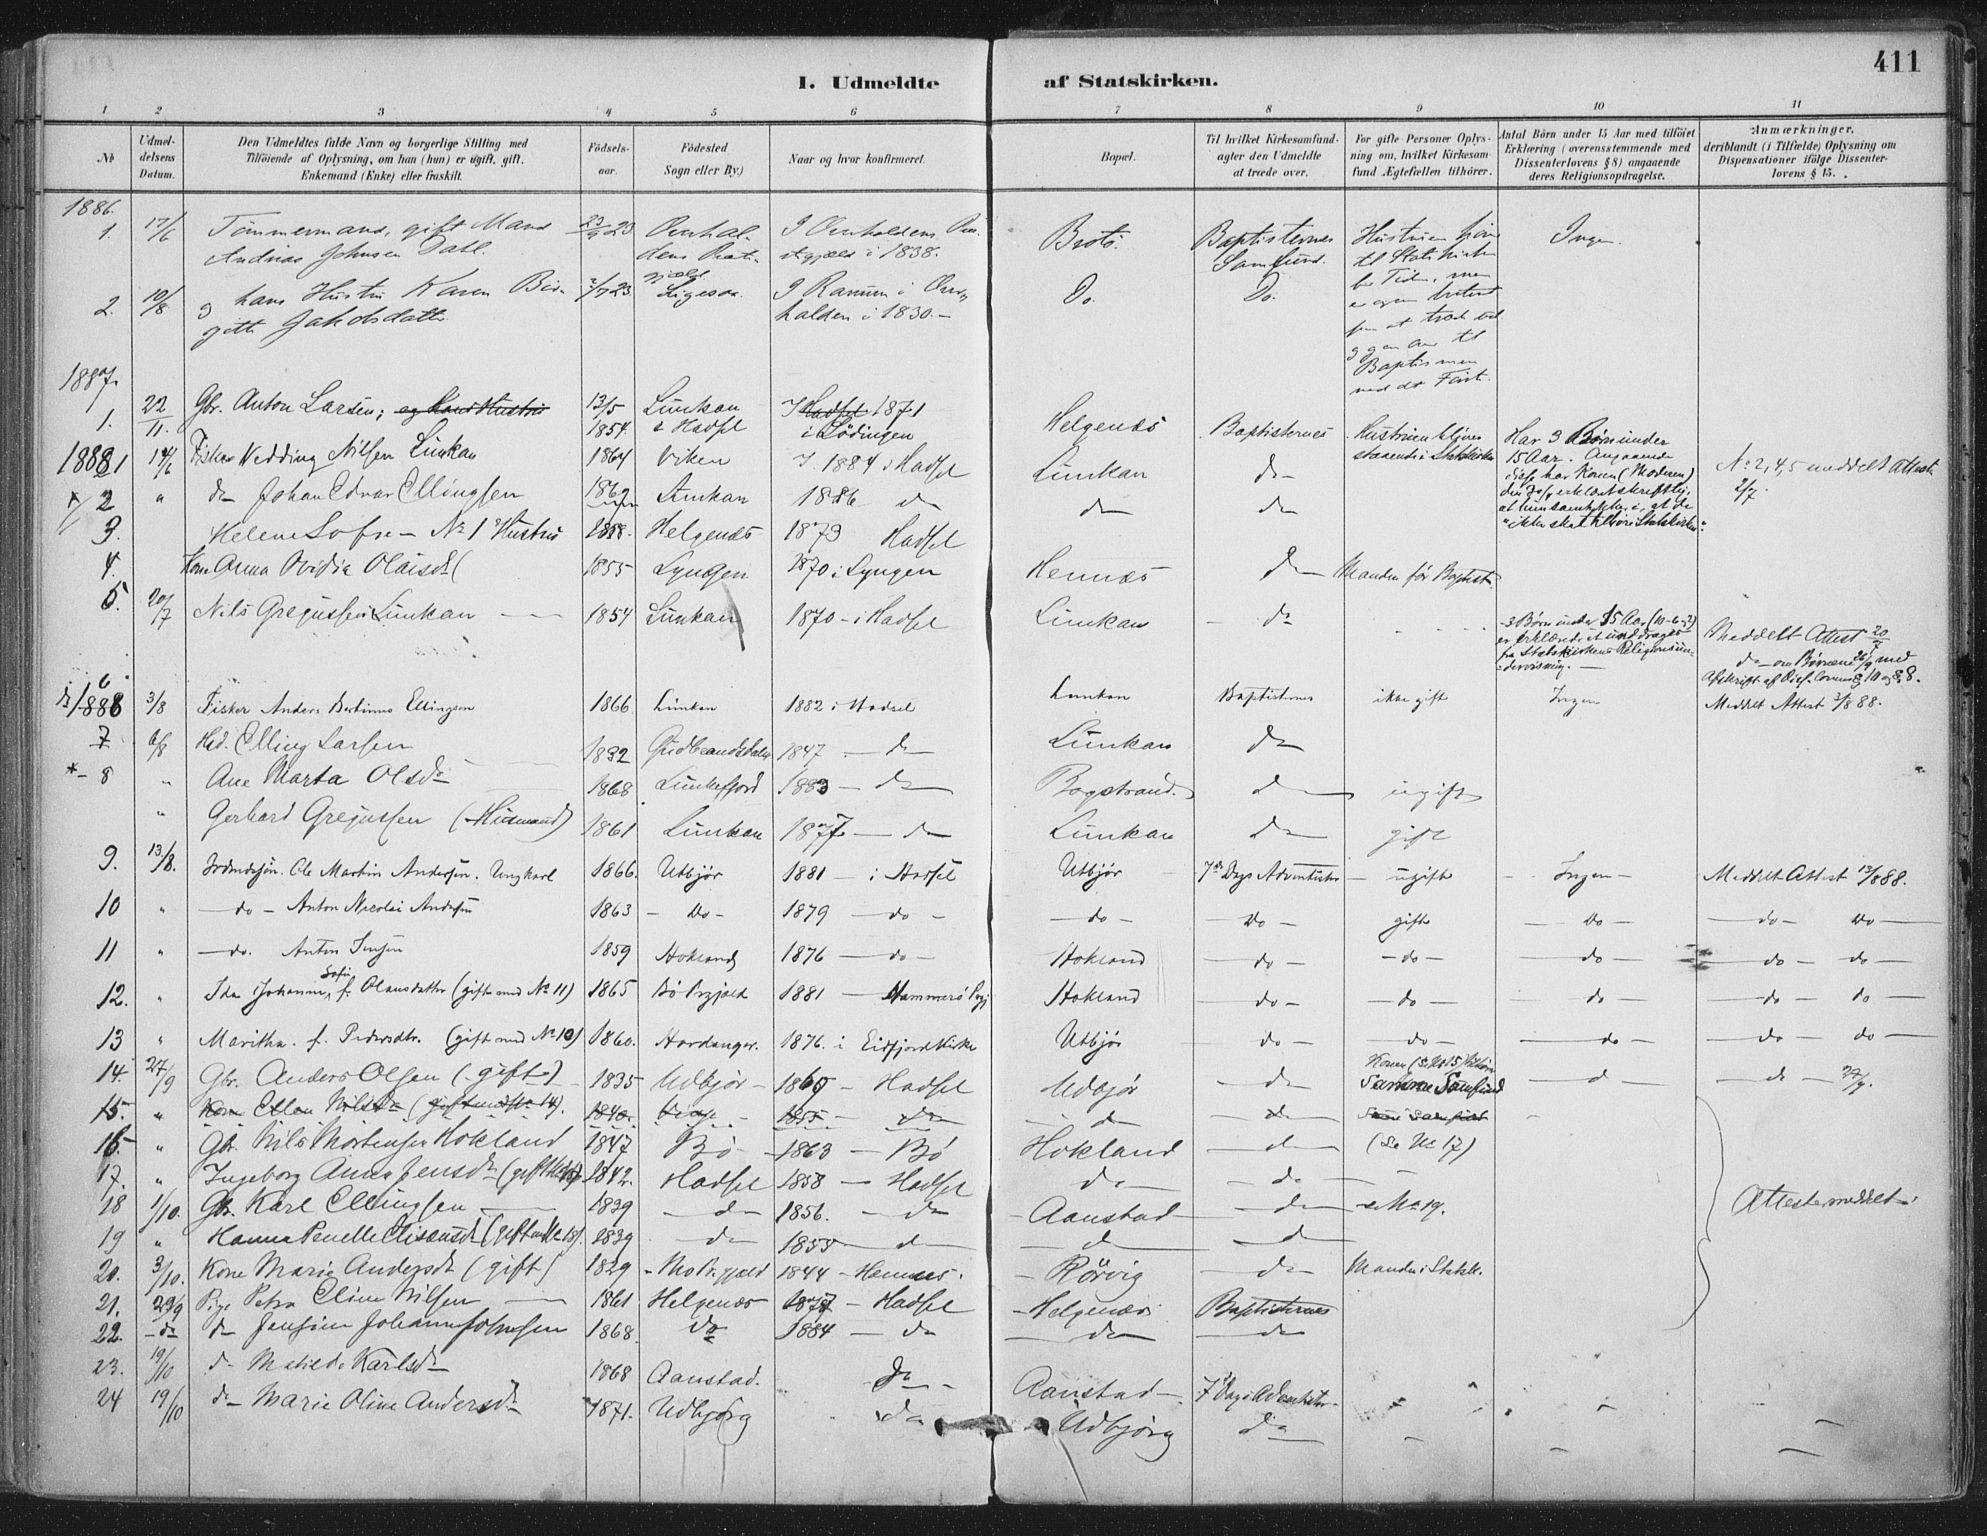 411
I. Udmeldte af Statskirken.
1 2 3 4 5 6 7 8 9 10 11
No
Udmel-
delsens
Datum.
Den Udmeldtes fulde Navn og borgerlige Stilling med
Tilføiende af Oplysning, om han (hun) er ugift, gift,
Enkemand (Enke) eller fraskilt.
Fødsels-
aar.
Fødested
Sogn eller By.)
Naar og hvor konfirmeret.
Bopæl.
Til hvilket Kirkesamfund-
agter den Udmeldte
at træde over.
For gifte Personer Oplys-
ning om, hvilket Kirkesam-
fund Ægtefællen tilhører.
Antal Börn under 15 Aar med tilføiet
Erklæring (overensstemmende med
Dissenterlovens § 8) angaaende
deres Religionsopdragelse.
Anmærkninger,
deriblandt (i Tilfælde) Oplysning om
Dispensationer ifølge Dissenter-
lovens § 15.
1886.
1. 17/6 Tømmermand, gift Mand 23/9 23 Overhal- I Overhaldens Brotö. Baptisternes Hustruen Ingen.
Andreas Johnsen Dahl. dens Præst- i 1838. Samfund. til Statskirken
gjæld
2. 10/8 og hans Hustru Karen Bir- 2/7 23. Ligesaa. I Ranum i Over- Do. Do.
gitte Jakobsdatter halden i 1830.-
Baptismen
1887.
1. 22/11. Gbr. Anton Larsen; og hans Hustru 13/5 1854. Lunkan i Hadsel I Hadsel 1871 i Lödingen Helgenæs Baptisternes Hustruen staaende i Statskirken Har 3 Børn under
15 Aar. Angaaende
disse har Konen (Moderen)
"ikke skal tilhöre Statskirken".
1888 1 14/6 Fisker Wedding Nilsen Lunkan 1864 Viken I 1884 i Hadsel Lunkan do No 2, 4, 5 meddelt Attest
2/7.
2 " do Johan Edvar Ellingsen 1862 Lunkan 1886 do do do
3. Helene Sofie - No 1 Hustru 1858. Helgenæs 1873 Hadsel
4. Kone Anna Ovidia Olaisdt 1855 Lyngen 1870 i Lyngen Hennæs do Manden för Baptist
5. 20/7 Nils Gregussen Lunkan 1854 Lunkan 1870 - i Hadsel Lunkan do -3 Børn under 15 Aar (10-6-2)
er erklærede at unddrages
fra Statskirkens Religionsun-
dervisning. Meddelt Attest 20/7
do om Børnene 26/9 med
6 1888 3/8 Fisker Anders Bertinus Ellingsen 1866 Lunkan 1882 i Hadsel Lunkan Baptisternes ikke gift Ingen Meddelt Attest 3/8 88.
7 6/8 Hd. Elling Larsen 1832 Gudbrandsdalen 1847 - do Lunkan do
* - 8 " Ane Marta Olsdr 1868 Lunkefjord 1883 - do Bogstrand. do ugift
" Gerhard Gregussen (Husmand) 1861 Lunkan 1877 - do Lunkan do gift
9. 13/8. Ole Martin Andersen. Ungkarl 1866. Utbjör 1881 - i Hadsel Utbjör 7de Dags Adventister - ugift - Ingen - Meddelt Attest 13/8 88.
10 " - do - Anton Nicolai Andersen 1863 - Do - 1879 - do - - do - - Do - gift - Do - - do - Do -
11 " - do. Anton Jensen 1859 Hokland 1876 - do - Hokland - do - - do - - do - - do - do -
12. " Ida Johanna Sofie f. Olausdatter (gift med No 11) 1865 Bö Prgjæld 1881 - Hammerö Prgj Hokland - do - - do - - do - - do - do -
13 " Maritha f. Pedersdtr. (gift med No 10) 1860. Hardanger. 1876. i Eidfjord Kirke Utbjör - do - - do - - do - - do - do -
14. 27/9 Gbr. Anders Olsen (gift) 1835 Udbjör 1860 - Hadsel Udbjör - do - Konen (se No 15) tilhører samme Samfund - do - - do - 27/9.
15. " Kone Ellen Nilsdr (gift med No 14). 1840. 1855 - do do - do - Samme Samfund
16. " Gbr. Nils Mortensen Hokland 1847 Bö 1863 - Bö Hokland - do - (Se No 17)
17. " Ingeborg Anna Jensdr (gift No 16) 1842. Hadsel 1858 - Hadsel do - do
18 1/10. Gbr. Karl Ellingsen 1839 - do - 1856. - do - Aanstad - do - se No 19. Attester meddelt
19 " Hanna Pernelle Elisensdr (gift m No 18). 1839 - do - 1855 - do do - do
20. 3/10. Kone Marie Andersdr (gift) 1829 Mo Pr.gjeld 1844 - Hemnes. - Rörvig - do - Manden i Statsk.
21. 29/9 Pige Petra Eline Nilsen 1861 Helgenæs 1877 - Hadsel - Helgenæs Baptisternes
22. - do do Jensine Johanne Johnsen 1868 do 1884 - do - do - do
23. 19/10 do Matilde Karlsdr 1868 Aanstad. do Aanstad 7de Dags Adventister
24 19/10 do Marie Oline Andersdr 1871. Udbjørg do Udbjørg do